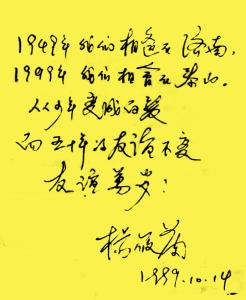 1949年我们相会在济南,
1999年我们相会在泰山。
从少年变成白发
而五十年的友谊不变
友谊万岁!
杨
1999.10.14